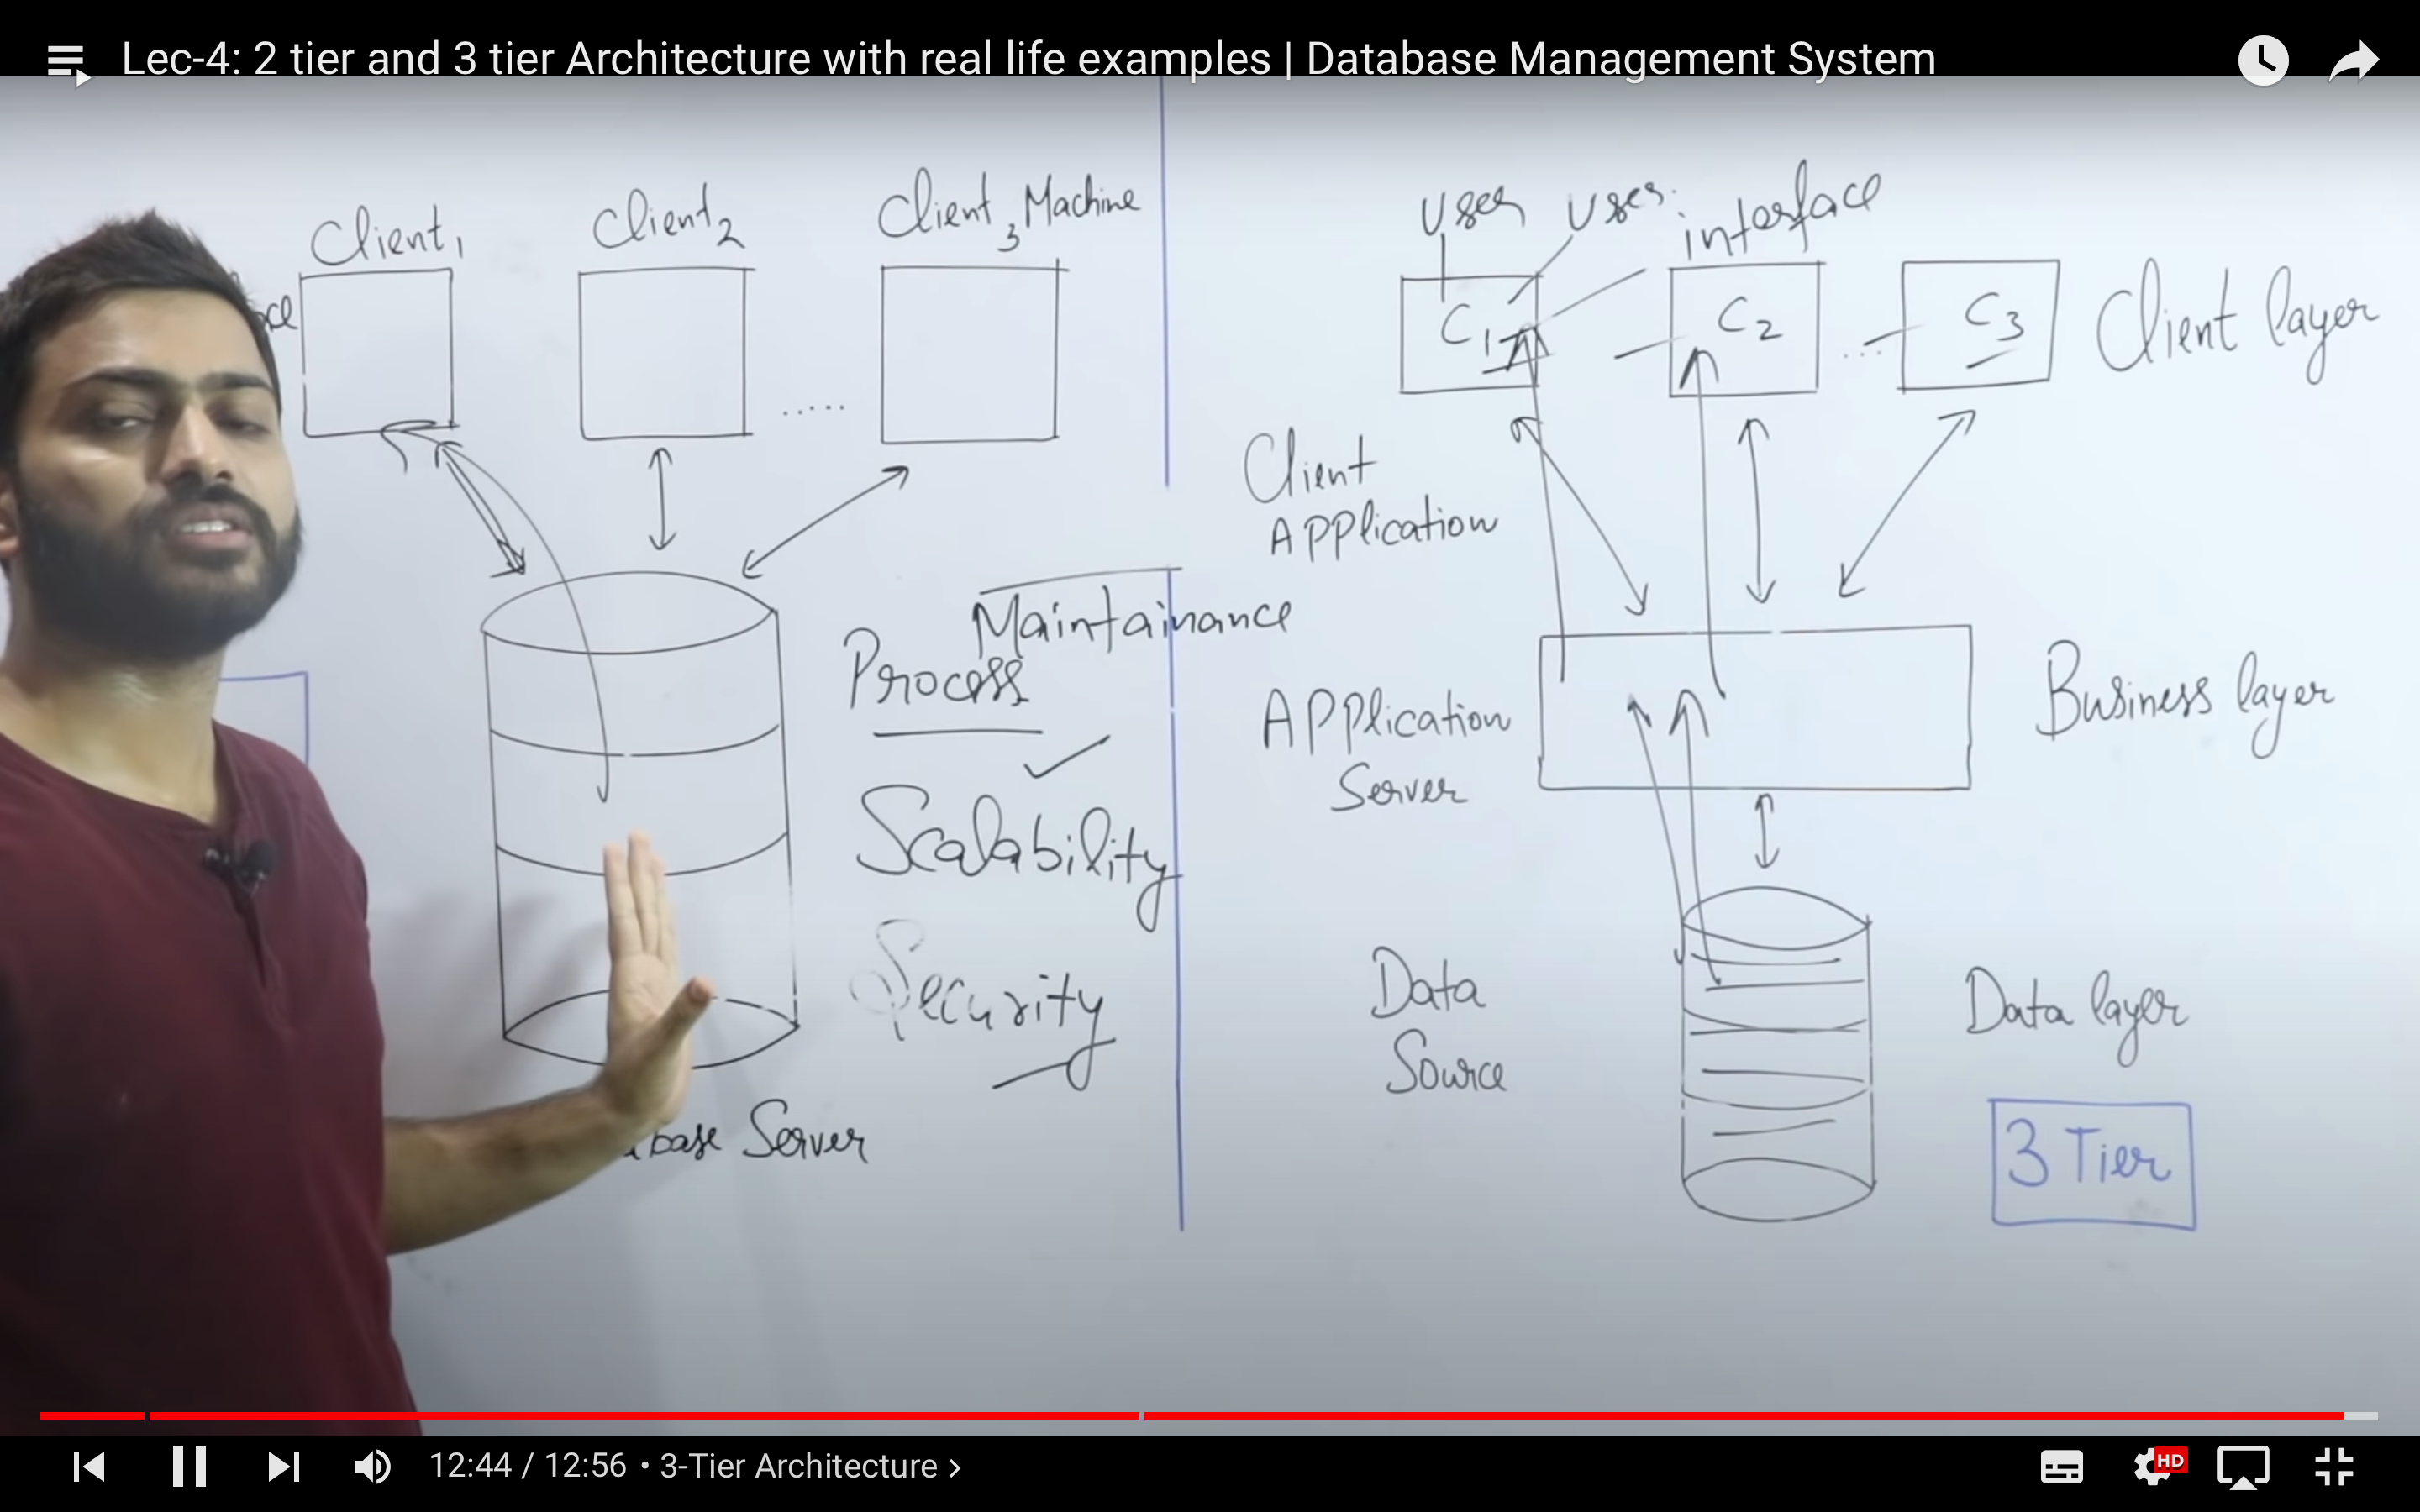 Lec-4: 2 tier and 3 tier Architecture with real life examples | Database Management System
Client1
Client2
Client3 Machine
Maintainance
Process
Scalability
Security
base Server
User
interface
C1
C2
C3
Client layer
Client
Application
Application
Server
Business layer
Data
Source
Data layer
3 Tier
12:44 / 12:56 • 3-Tier Architecture >
HD